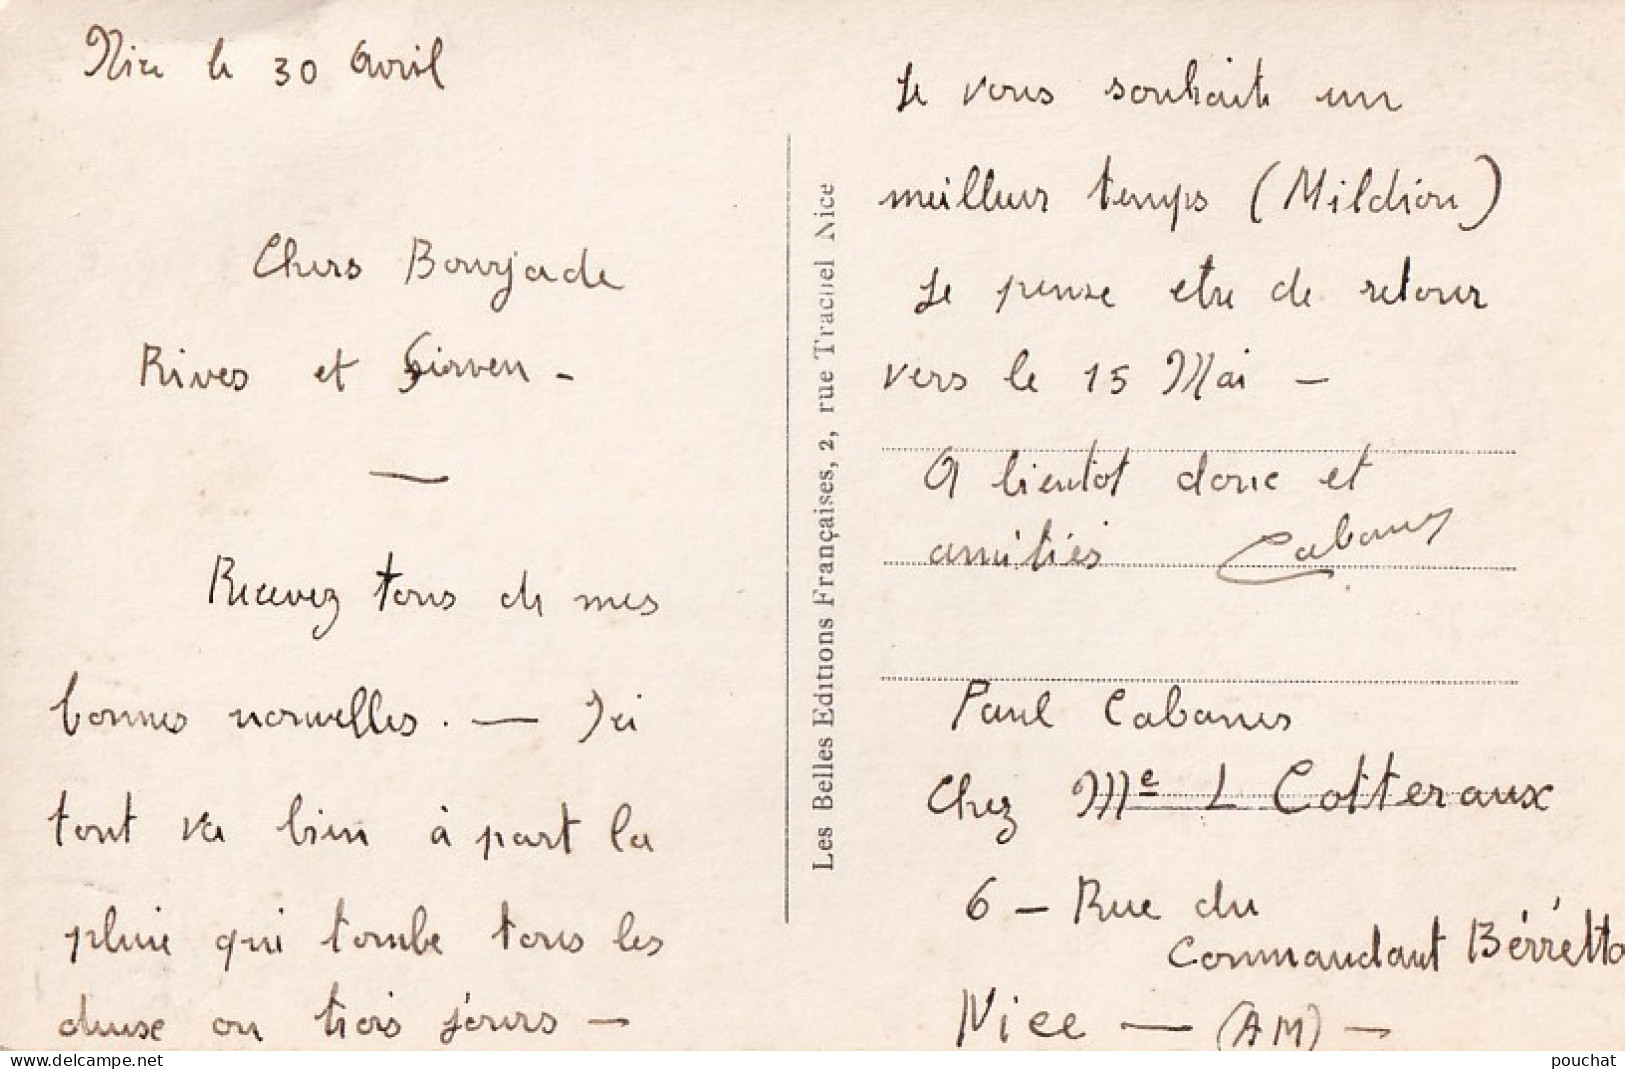 Nice le 30 Avril
Chers Bourjade
Rives et Sirven -
—
Recevez tous de mes
bonnes nouvelles. — Ici
tout va bien à part la
pluie qui tombe tous les
deux ou trois jours —
Les Belles Editions Françaises, 2, rue Trachel Nice
Je vous souhaite un
meilleur temps (Mildiou)
Je pense etre de retour
vers le 15 Mai —
A bientot donc et
amitiés Cabanes
Paul Cabanes
Chez Me L Cotteraux
6 — Rue du
Commandant Bérrétta
Nice — (AM) —
www.delcampe.net
pouchat